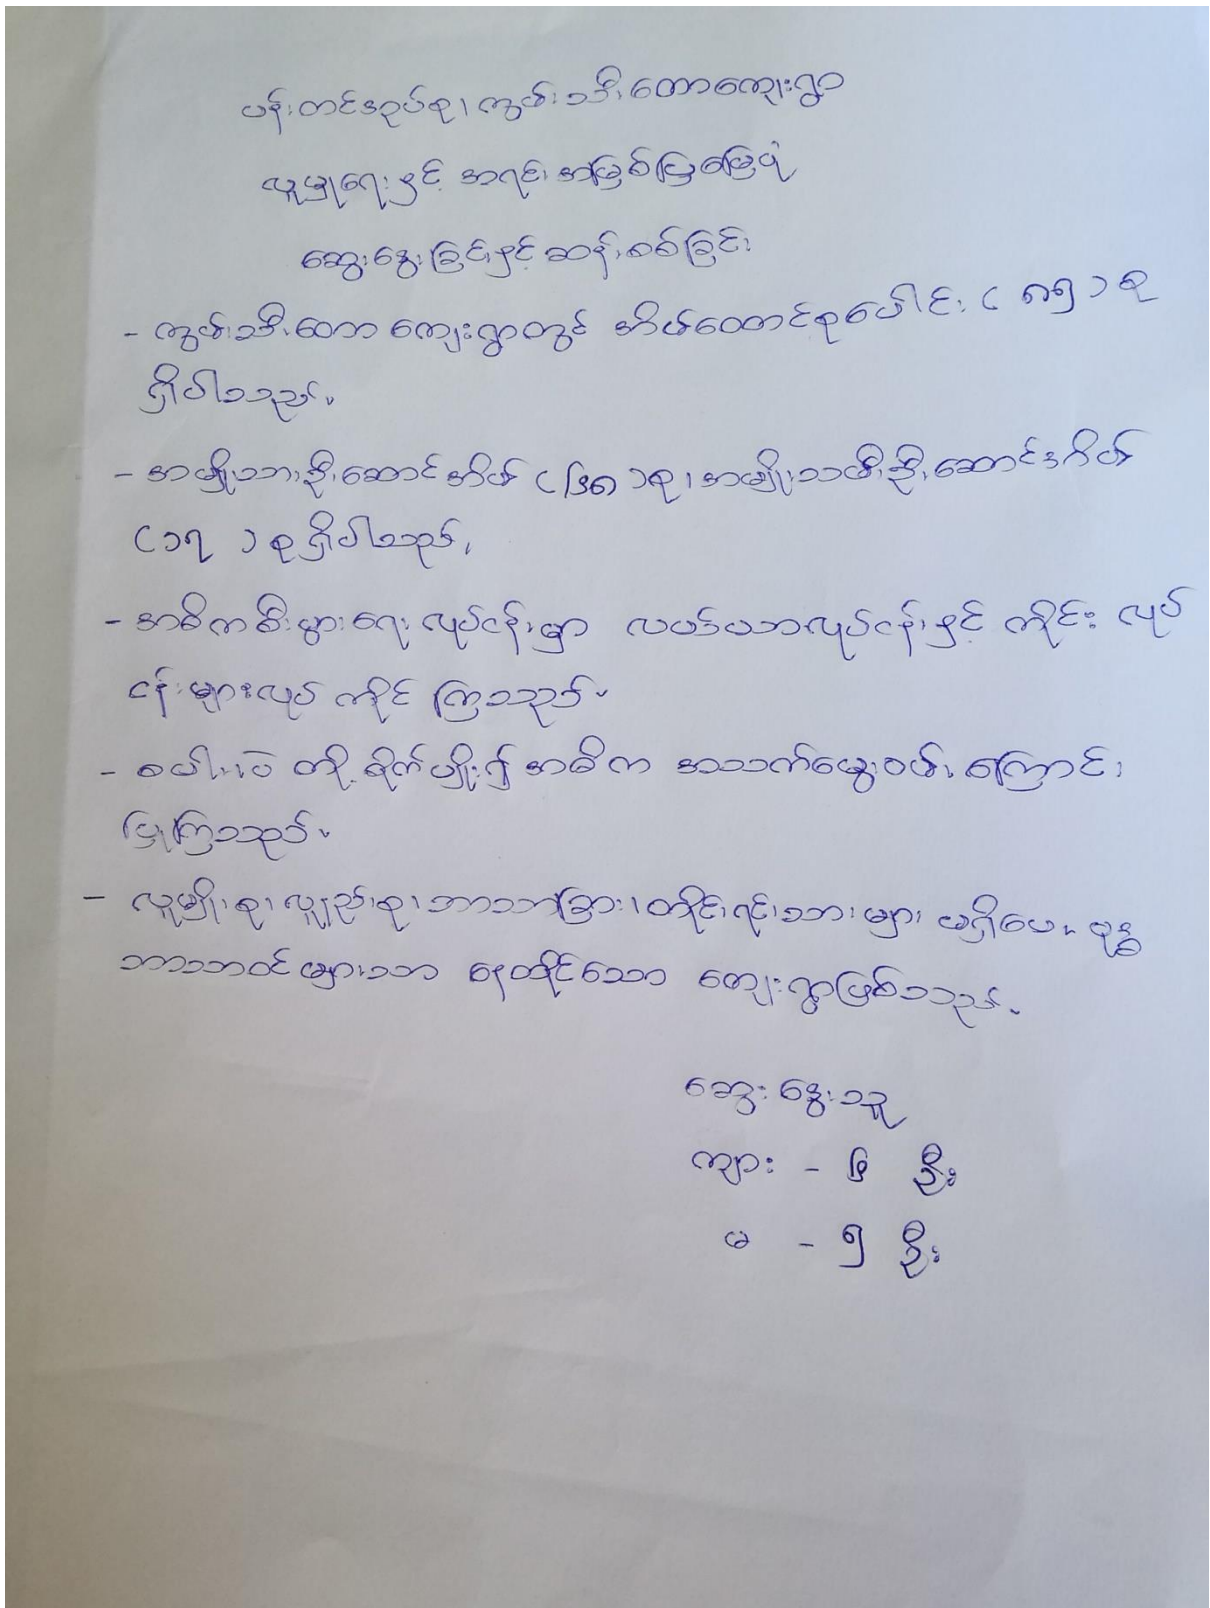 ပန်းတင်အုပ်စု၊ ကွမ်းသီးတောကျေးရွာ
လူမှုရေးနှင့် အရင်းအမြစ်ပြမြေပုံ
ဆွေးနွေးခြင်းနှင့် ဆန်းစစ်ခြင်း
- ကွမ်းသီးတော ကျေးရွာတွင် အိမ်ထောင်စုပေါင်း ( ၈၅ ) စု
ရှိပါသည်။
- အမျိုးသားဦးဆောင်အိမ် ( ၆၈ ) စု၊ အမျိုးသမီးဦးဆောင်အိမ်
( ၁၇ ) စုရှိပါသည်။
- အဓိကစီးပွားရေး လုပ်ငန်းမှာ လယ်ယာလုပ်ငန်းနှင့် ကိုင်း လုပ်
ငန်းများလုပ် ကိုင် ကြသည်။
- စပါး၊ ပဲ တို့ စိုက်ပျိုး၍ အဓိက အသက်မွေးဝမ်း ကြောင်း
ပြုကြသည်။
- လူမျိုးစု၊ လူနည်းစု၊ ဘာသာခြား၊ တိုင်းရင်းသားများ မရှိပေ။ ဗုဒ္ဓ
ဘာသာဝင်များသာ နေထိုင်သော ကျေးရွာဖြစ်သည်။
ဆွေး နွေးသူ
ကျား - ၆ ဦး
မ - ၅ ဦး